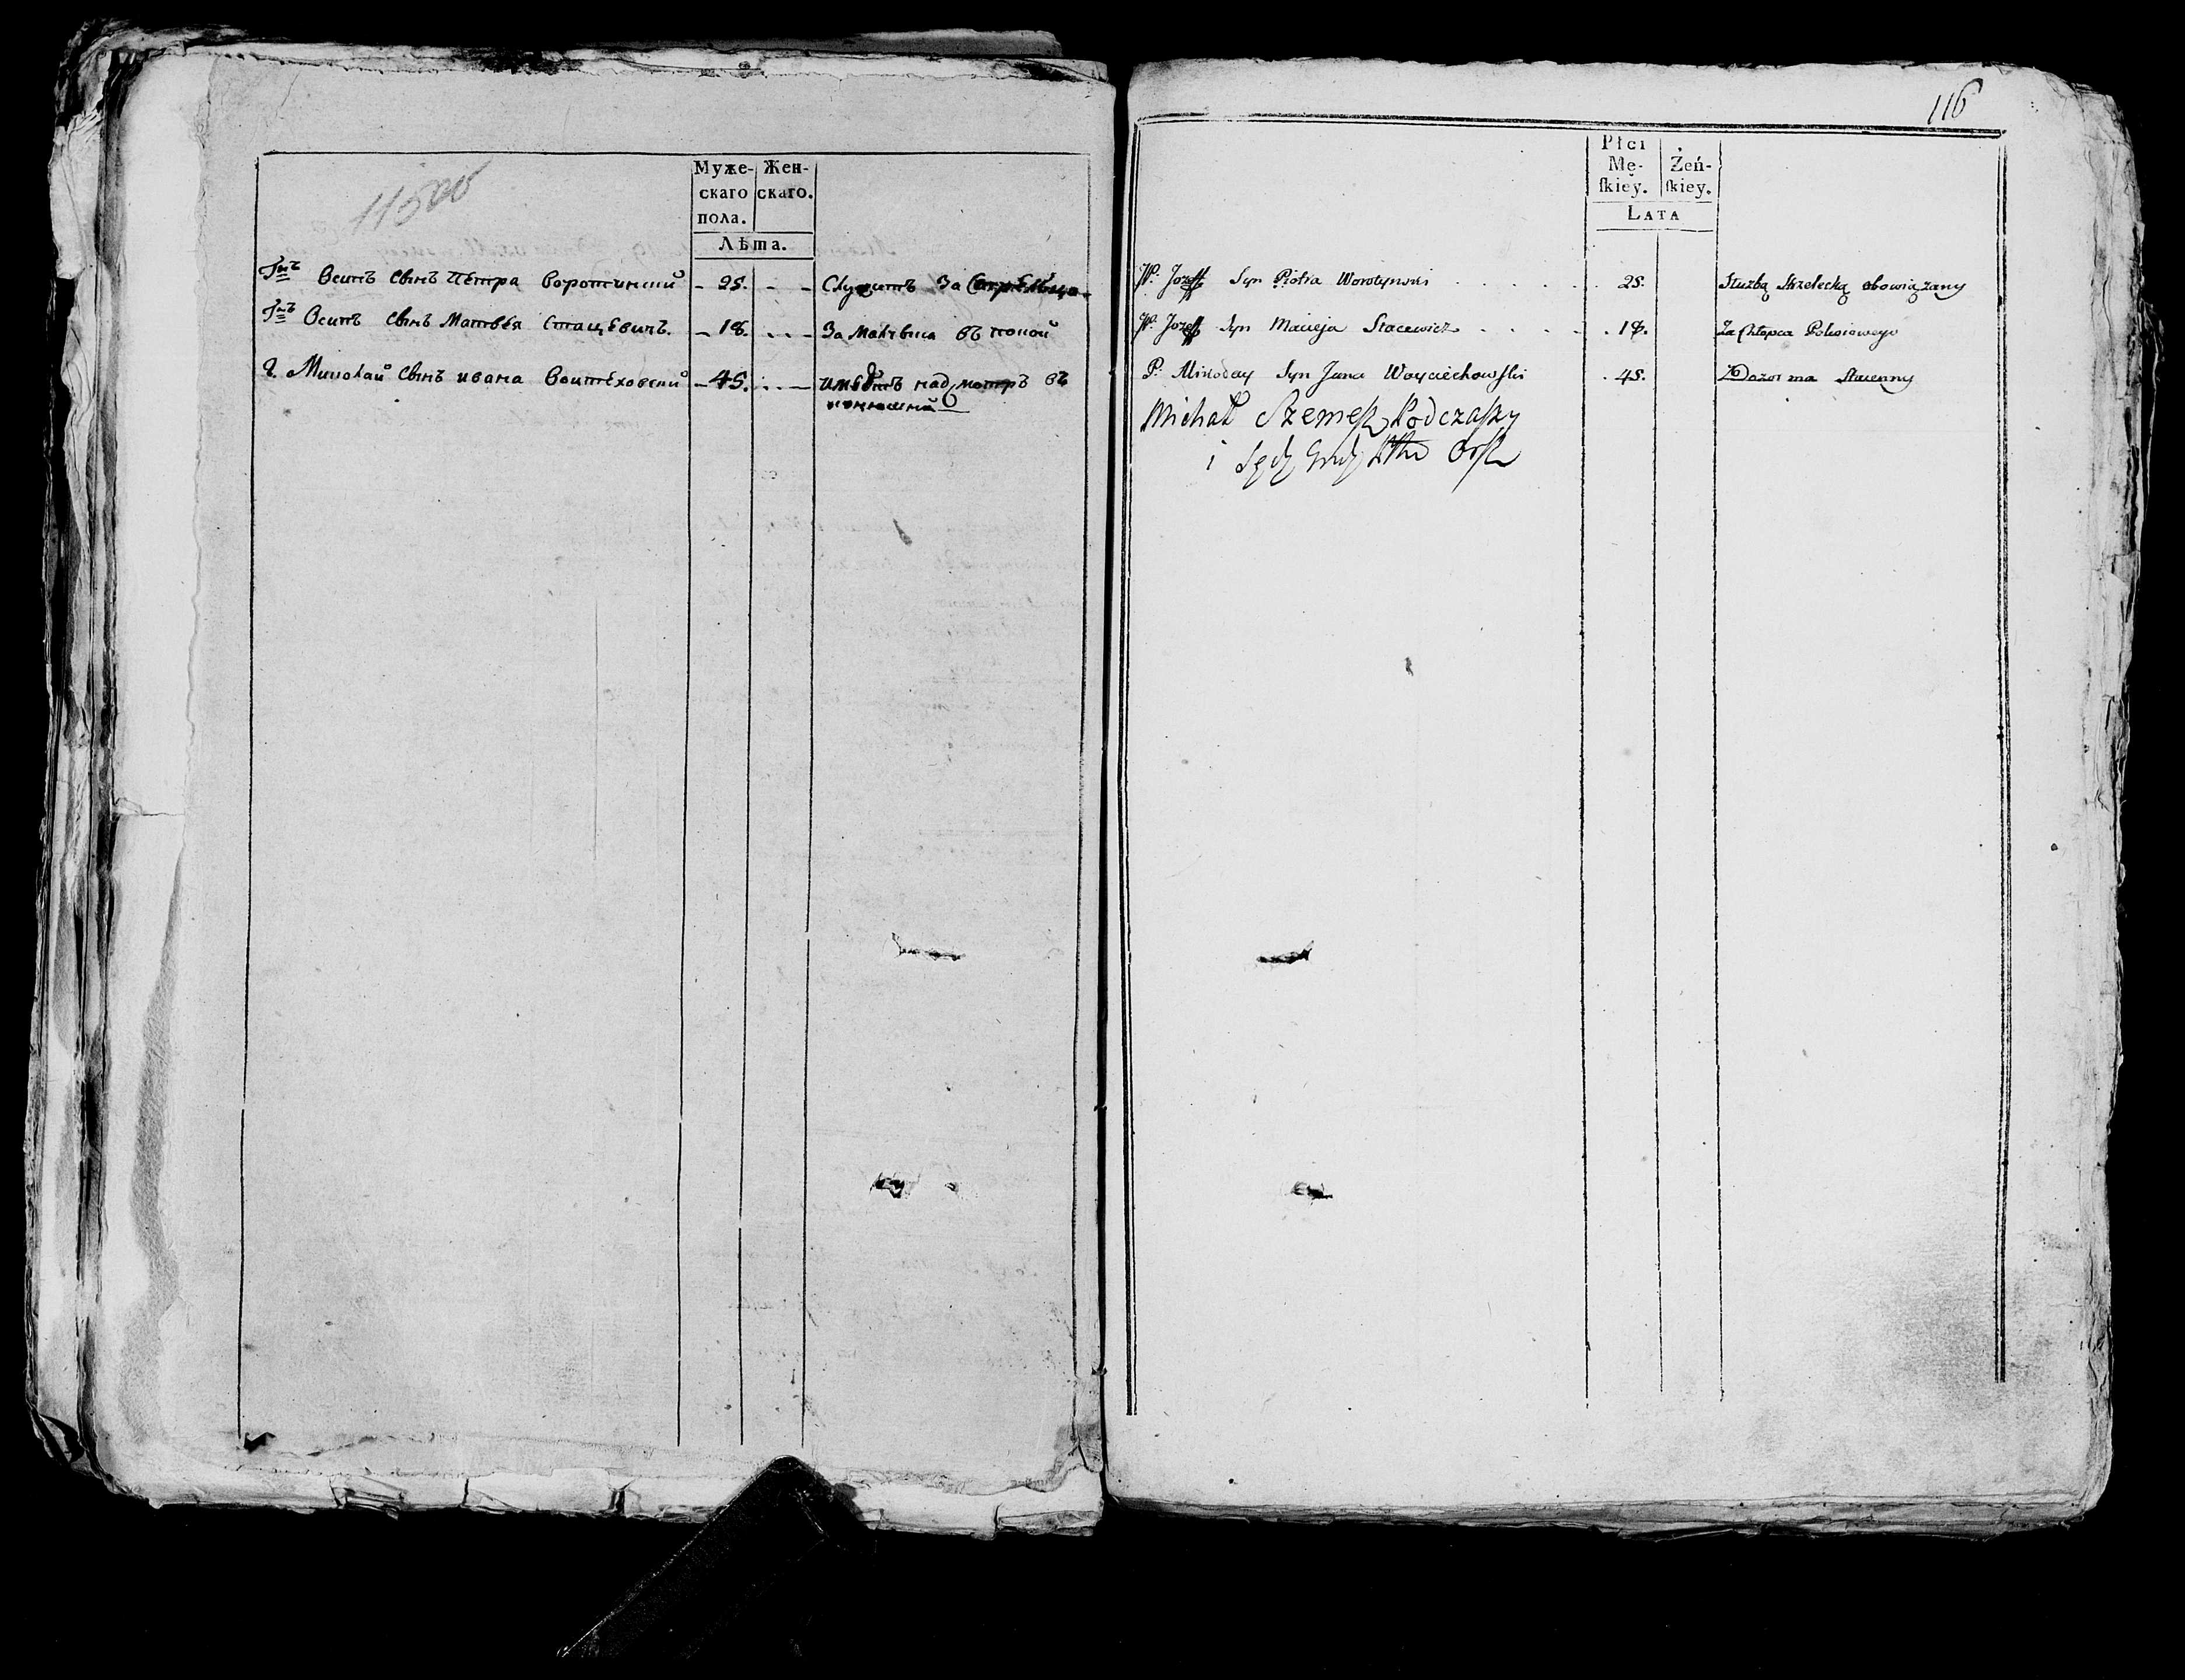 115 об
Муже- Жен-
скаго скаго.
пола.
Лѣта.
Гнъ Осипъ Сынъ Петра Воротински – 25. – – Служитъ За Стрѣльца
Гнъ Осипъ Сынъ Матвѣя Стацевичъ. – 18. . – – За Малчыка въ покои
Г. Миколай Сынъ ивана Воитеховский – 45. . – имѣетъ надсмотръ въ
конюшни
116
Płci
Mę- Żeń-
ſkiey. ſkiey.
LATA
W. Jozeff Syn Piotra Worotynski . . . . . 25. Służbą Strzelecką obowiązany
W. Jozeff Syn Macieja Stacewicz . . . . 18. Za Chłopca Pokoiowego
P. Mikołay Syn Jana Woyciechowſki . 45. Dozor ma Staienny
Michał Szemeſz Podczaſzy
i Sędz Grodz Ptu Orſz